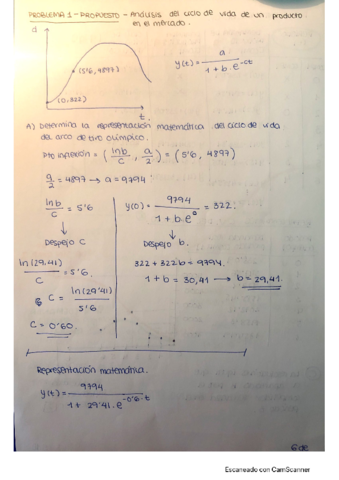 PROBLEMA 1 - PROPUESTO - Análisis del ciclo de vida de un producto
en el mercado.
d
(5'6, 4897)
(0,322)
t.
y(t) = a / 1 + b · e^-ct
A) Determina la representación matemática del ciclo de vida
del arco de tiro olímpico.
Pto inflexión = ( lnb / c , a / 2 ) = (5'6, 4897)
a / 2 = 4897 → a = 9794
lnb / c = 5'6
↓
Despejo c
ln(29,41) / c = 5'6.
c = ln(29'41) / 5'6
c = 0'60.
y(0) = 9794 / 1 + b · e^0 = 322.
↓
Despejo b.
322 + 322b = 9794.
1 + b = 30,41 → b = 29,41.
Representación matemática.
y(t) = 9794 / 1 + 29'41 · e^-0'6·t
Escaneado con CamScanner